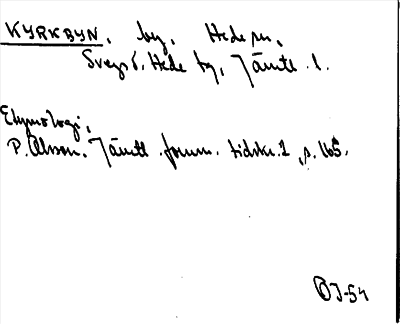 KYRKBYN, by, Hede sn,
Svegs o. Hede tg, Jämtl. l.
Etymologi,
P. Olsson. Jämtl. fornm. tidskr. 1, s. 165.
OJ-54